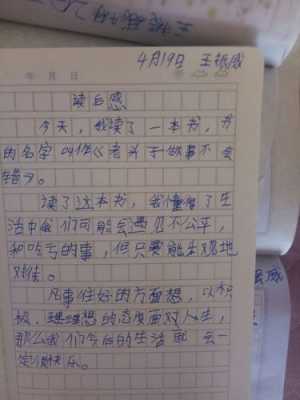 4月19日 王银威
年 月 日
读后感
今天，我读了一本书，书
的名字叫作《老头子做事不会
错》。
读了这本书，我懂得了生
活中我们可能会遇见不公平，
和吃亏的事，但只要能乐观地
对待。
凡事往好的方面想，以积
极、理想的态度面对人生，
那么我们今后的生活就会一
定很快乐。